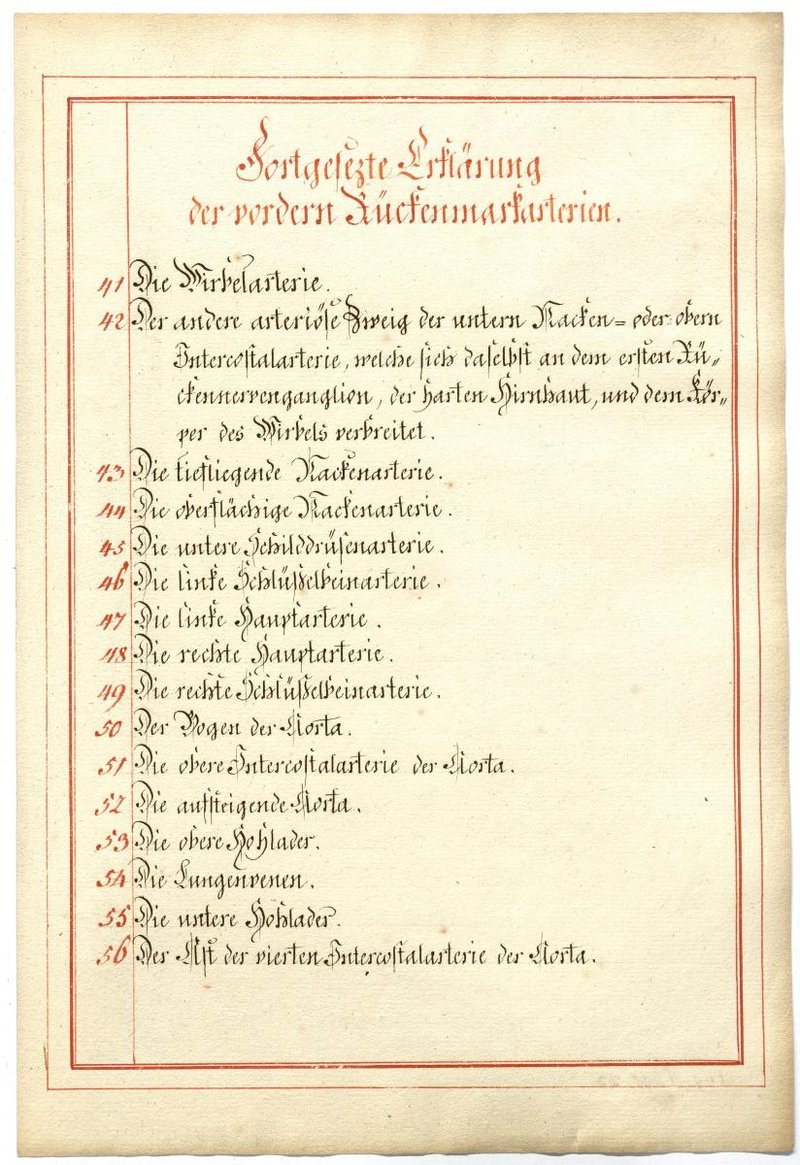 Fortgesezte Erklärung
der vordern Rückenmarkarterien.
41 Die Wirbelarterie.
42 Der andere arteriöse Zweig der untern Nacken= oder obern
Intercostalarterie, welche sich daselbst an dem ersten Rü„
ckennervenganglion, der harten Hirnhaut, und dem Kör„
per des Wirbels verbreitet.
43 Die tiefliegende Nackenarterie.
44 Die oberflächige Nackenarterie.
45 Die untere Schilddrüsenarterie.
46 Die linke Schlüßelbeinarterie.
47 Die linke Hauptarterie.
48 Die rechte Hauptarterie.
49 Die rechte Schlüßelbeinarterie.
50 Der Bogen der Aorta.
51 Die obere Intercostalarterie der Aorta.
52 Die aufsteigende Aorta.
53 Die obere Hohlader.
54 Die Lungenvenen.
55 Die untere Hohlader.
56 Der Ast der vierten Intercostalarterie der Aorta.